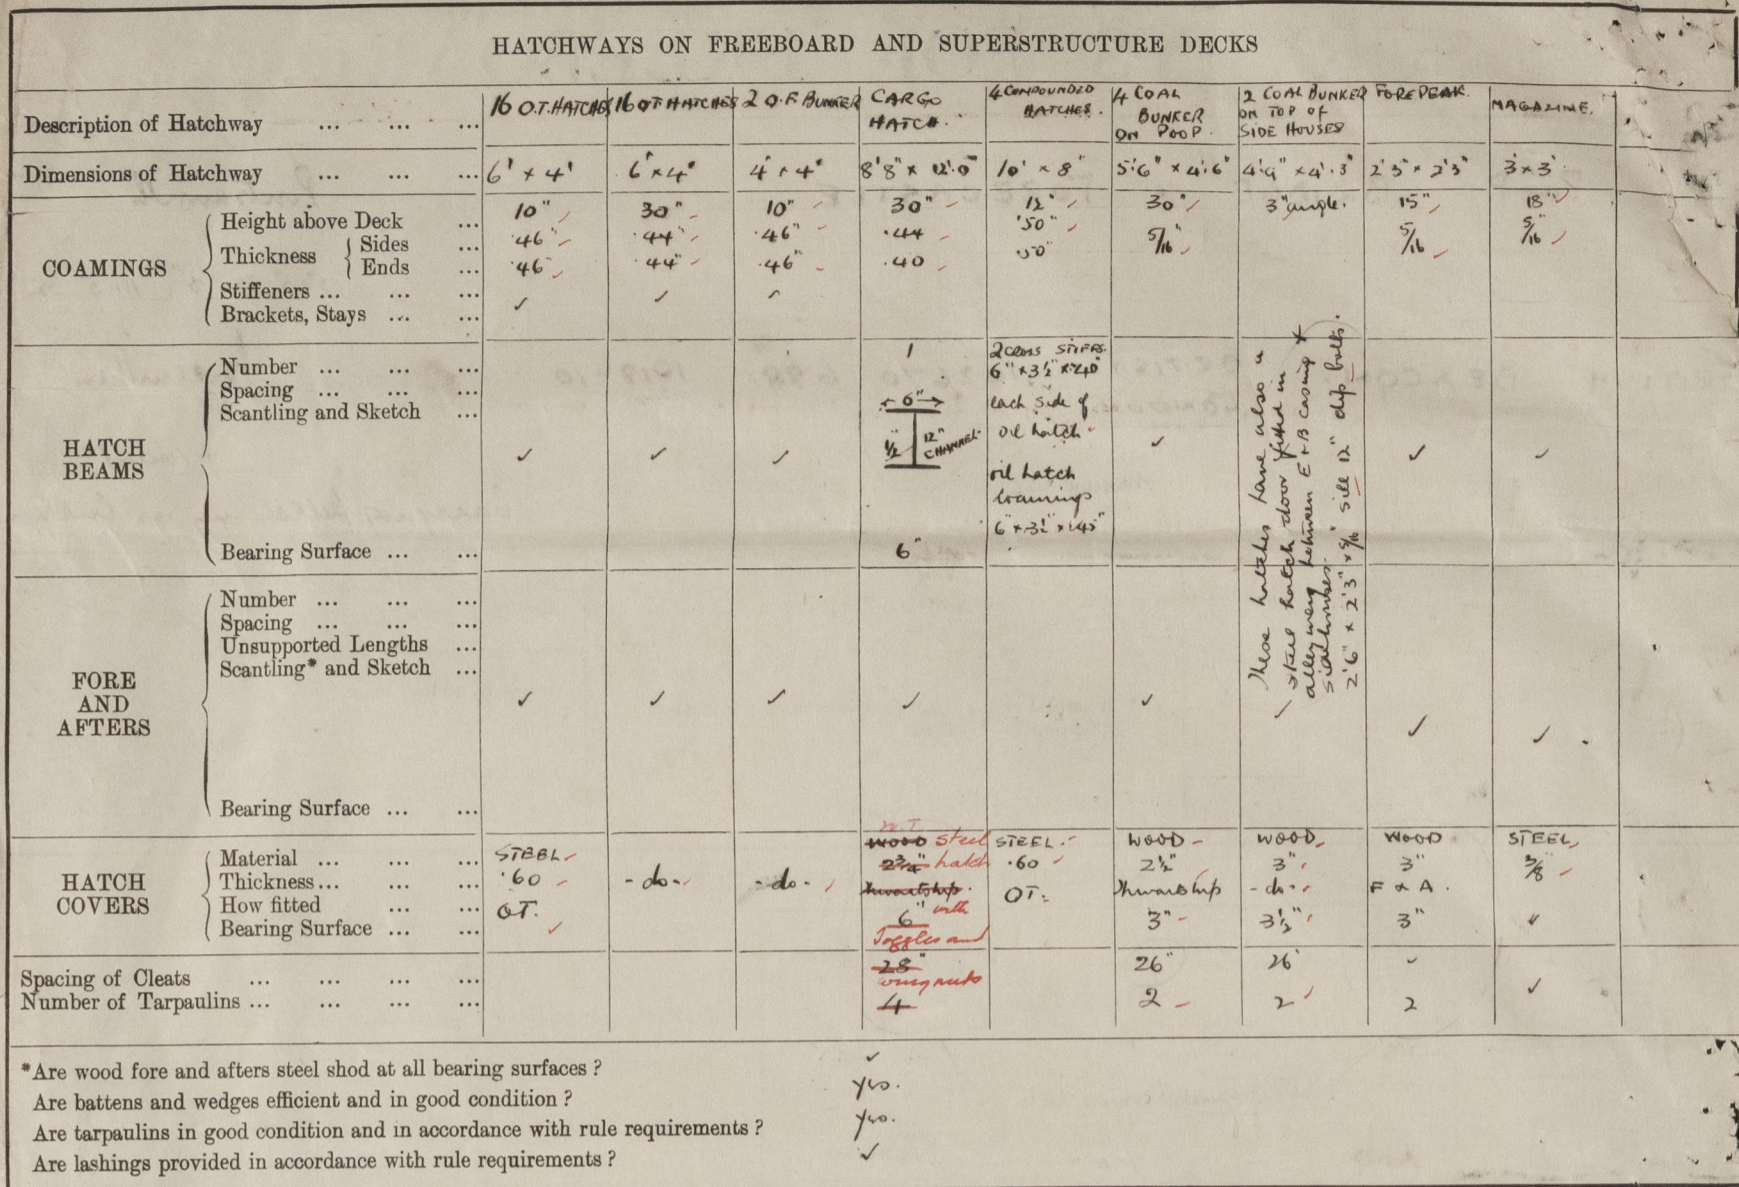 HATCHWAYS ON FREEBOARD AND SUPERSTRUCTURE DECKS
Description of Hatchway ... ... ... 16 O.T. HATCHES 16 OT HATCHES 2 O.F. BUNKER CARGO HATCH. 4 COMPOUNDED HATCHES. 4 COAL BUNKER ON POOP. 2 COAL BUNKER ON TOP OF SIDE HOUSES FOREPEAK. MAGAZINE.
Dimensions of Hatchway ... ... ... 6' x 4' 6' x 4' 4' x 4' 8'8" x 12'.0" 10' x 8" 5'.6" x 4'.6" 4'.9" x 4'.3" 2'3" x 2'3" 3' x 3'
COAMINGS
Height above Deck ... 10" 30" 10" 30" 12" 30" 3" angle. 15" 18"
Thickness Sides ... .46" .44" .46" .44 .50" 5/16" 5/16 5/16"
Ends ... .46" .44" .46" .40 .50"
Stiffeners ... ... ... ✓ ✓ ✓
Brackets, Stays ... ...
HATCH BEAMS
Number ... ... ... 1 2 cross stiffs.
Spacing ... ... ... 6" x 3½" x .40"
Scantling and Sketch ... 6" each side of
½" 12" CHANNEL oil hatch
✓ ✓ ✓ ✓ ✓ ✓
oil hatch
coamings
6" x 3½" x .45"
Bearing Surface ... ... 6"
These hatches have also a
steel hatch door fitted in
alleyway between E + B casing &
sidehouses.
2'6" x 2'3" x 5/16" sill 12" clip bolts.
FORE AND AFTERS
Number ... ... ...
Spacing ... ... ...
Unsupported Lengths ...
Scantling* and Sketch ...
✓ ✓ ✓ ✓ ✓ ✓ ✓ ✓
Bearing Surface ... ...
HATCH COVERS
W.T.
Material ... ... ... STEEL WOOD steel STEEL. WOOD WOOD WOOD STEEL
Thickness ... ... ... .60 -do- -do- 2¾" hatch .60 2½" 3" 3" 3/8
How fitted ... ... OT. thwartship. OT. thwartship -do- F & A.
Bearing Surface ... ... ✓ 6" with 3" 3½" 3" ✓
Toggles and
Spacing of Cleats ... ... ... ... 28" 26" 26" ✓
wing nuts
Number of Tarpaulins ... ... ... ... 4 2 2 2 ✓
*Are wood fore and afters steel shod at all bearing surfaces ? ✓
Are battens and wedges efficient and in good condition ? yes.
Are tarpaulins in good condition and in accordance with rule requirements ? yes.
Are lashings provided in accordance with rule requirements ? ✓